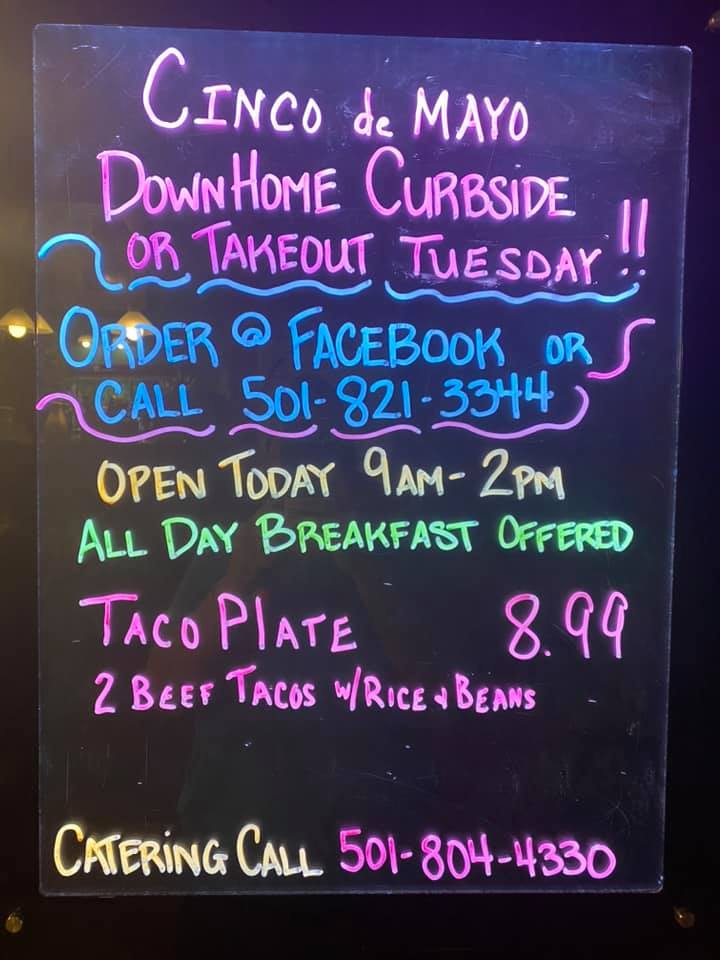 CINCO de MAYO
DOWNHOME CURBSIDE
OR TAKEOUT TUESDAY!!
ORDER @ FACEBOOK OR
CALL 501-821-3344
OPEN TODAY 9AM-2PM
ALL DAY BREAKFAST OFFERED
TACO PLATE 8.99
2 BEEF TACOS W/RICE & BEANS
CATERING CALL 501-804-4330